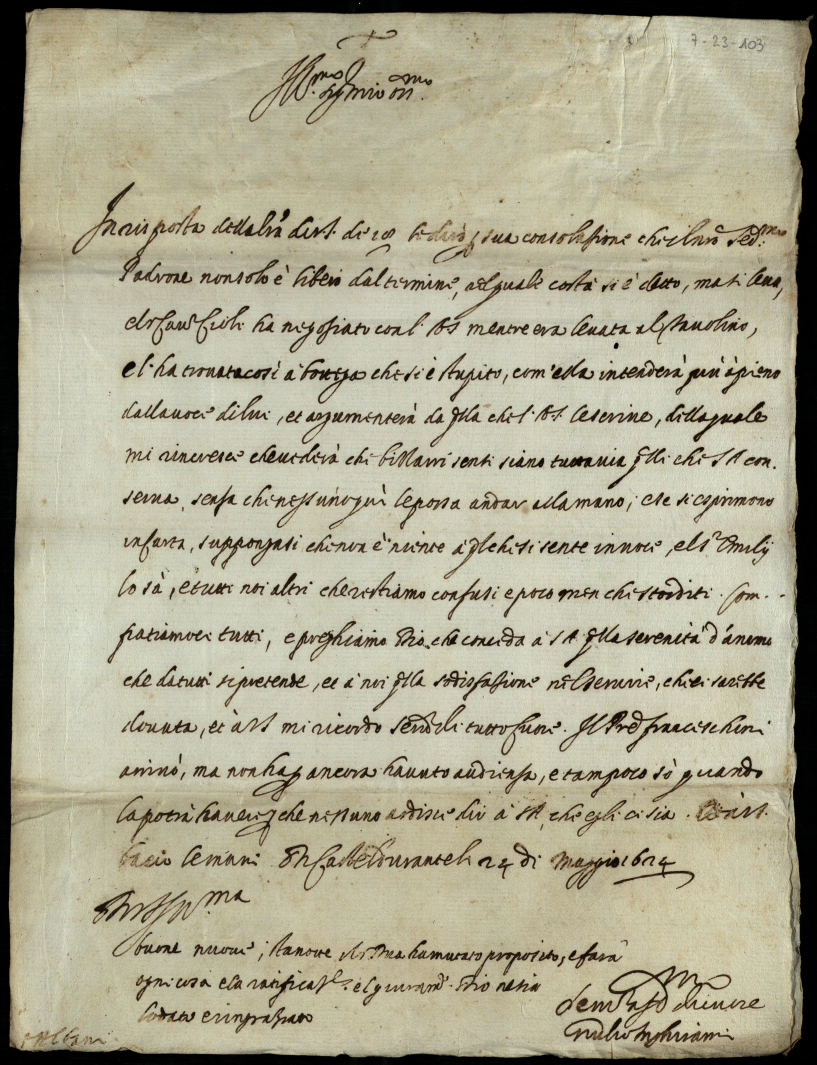 7-23-103
+
Ill.mo Sig.r mio oss.mo
In risposta della l'ra di V.S. de 18 le dirò p sua consolatione che il nro Ser.mo
Padrone non solo è libero dal termine, nel quale costà si è detto, ma si leva,
el S.r Cav.r Cioli ha negotiato con l'A.S. mentre era levata al tavolino,
e l'ha trovata così à bottega che si è stupito, com'ella intenderà più à pieno
dalla voce di lui, et argumenterà da qlla che l'A.S. le scrive, della quale
mi rincresce che vederà che bizzarri senti siano tuttavia qlli che S A con-
serva, senza che nessuno qui le possa andar alla mano; e se si esprimono
in carta, suppongasi che non è niente à ql che si sente in voce, el S.r Emilij
lo sà, e tutti noi altri che restiamo confusi e poco men che storditi. Com-
patiamoci tutti, e preghiamo Dio che conceda à S A qlla serenità d'animo
che da tutti si pretende, et à noi qlla sodisfazione nel servire, che ci sarebbe
dovuta, et à V.S. mi ricordo ser.re di tutto cuore. Il Pred. Franceschini
arrivò, ma non ha p ancora havuto audienza, e tampoco sò quando
la potrà havere, p che nessuno ardisce dir à S A, che egli ci sia. Et à V.S.
bacio le mani Di Casteldurante li 24 di Maggio 1624
Di V.S. Ill.ma
buone nuove; stanotte il S.r Duca ha mutato proposito, e farà
ogni cosa e la ratifica, el giuram.to Dio ne sia
lodato e ringratiato
Giulio
Albani